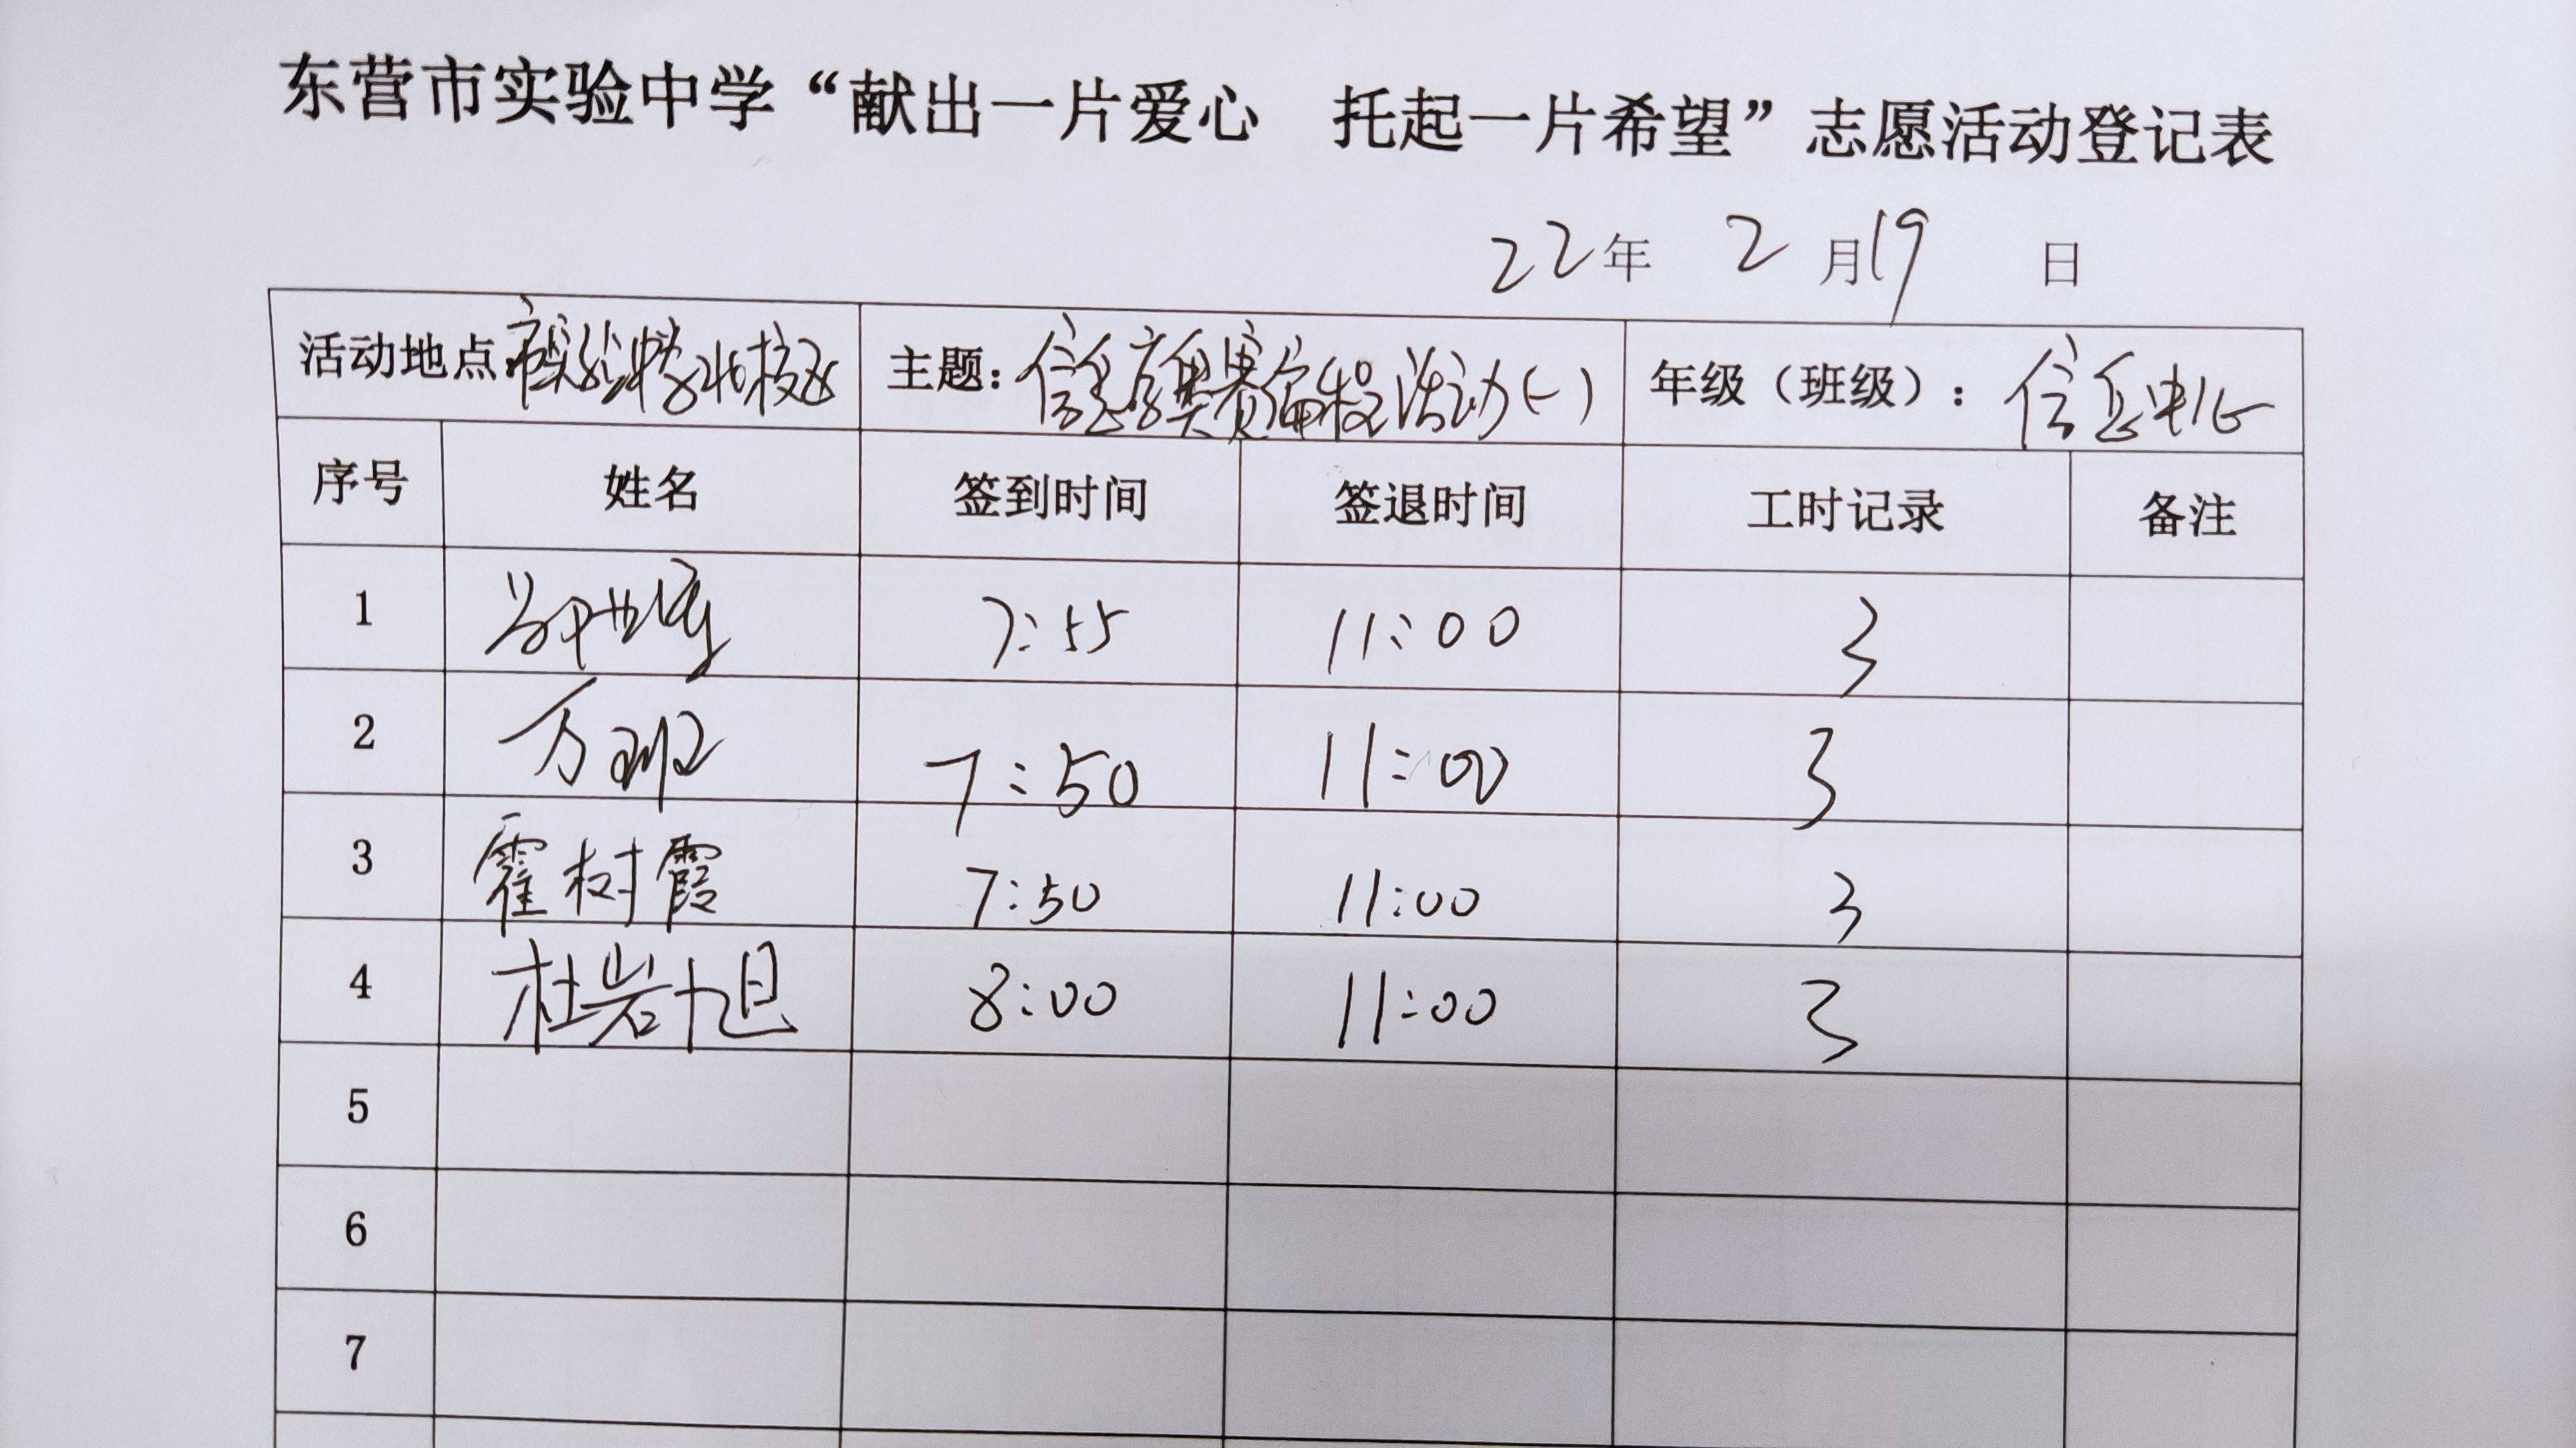 东营市实验中学“献出一片爱心 托起一片希望”志愿活动登记表
22年 2月19日
活动地点：市实验中学北校区 主题：信息学奥赛编程活动(一) 年级（班级）：信息中心
序号 姓名 签到时间 签退时间 工时记录 备注
1 7:55 11:00 3
2 万 7:50 11:00 3
3 霍树霞 7:50 11:00 3
4 杜岩旭 8:00 11:00 3
5
6
7